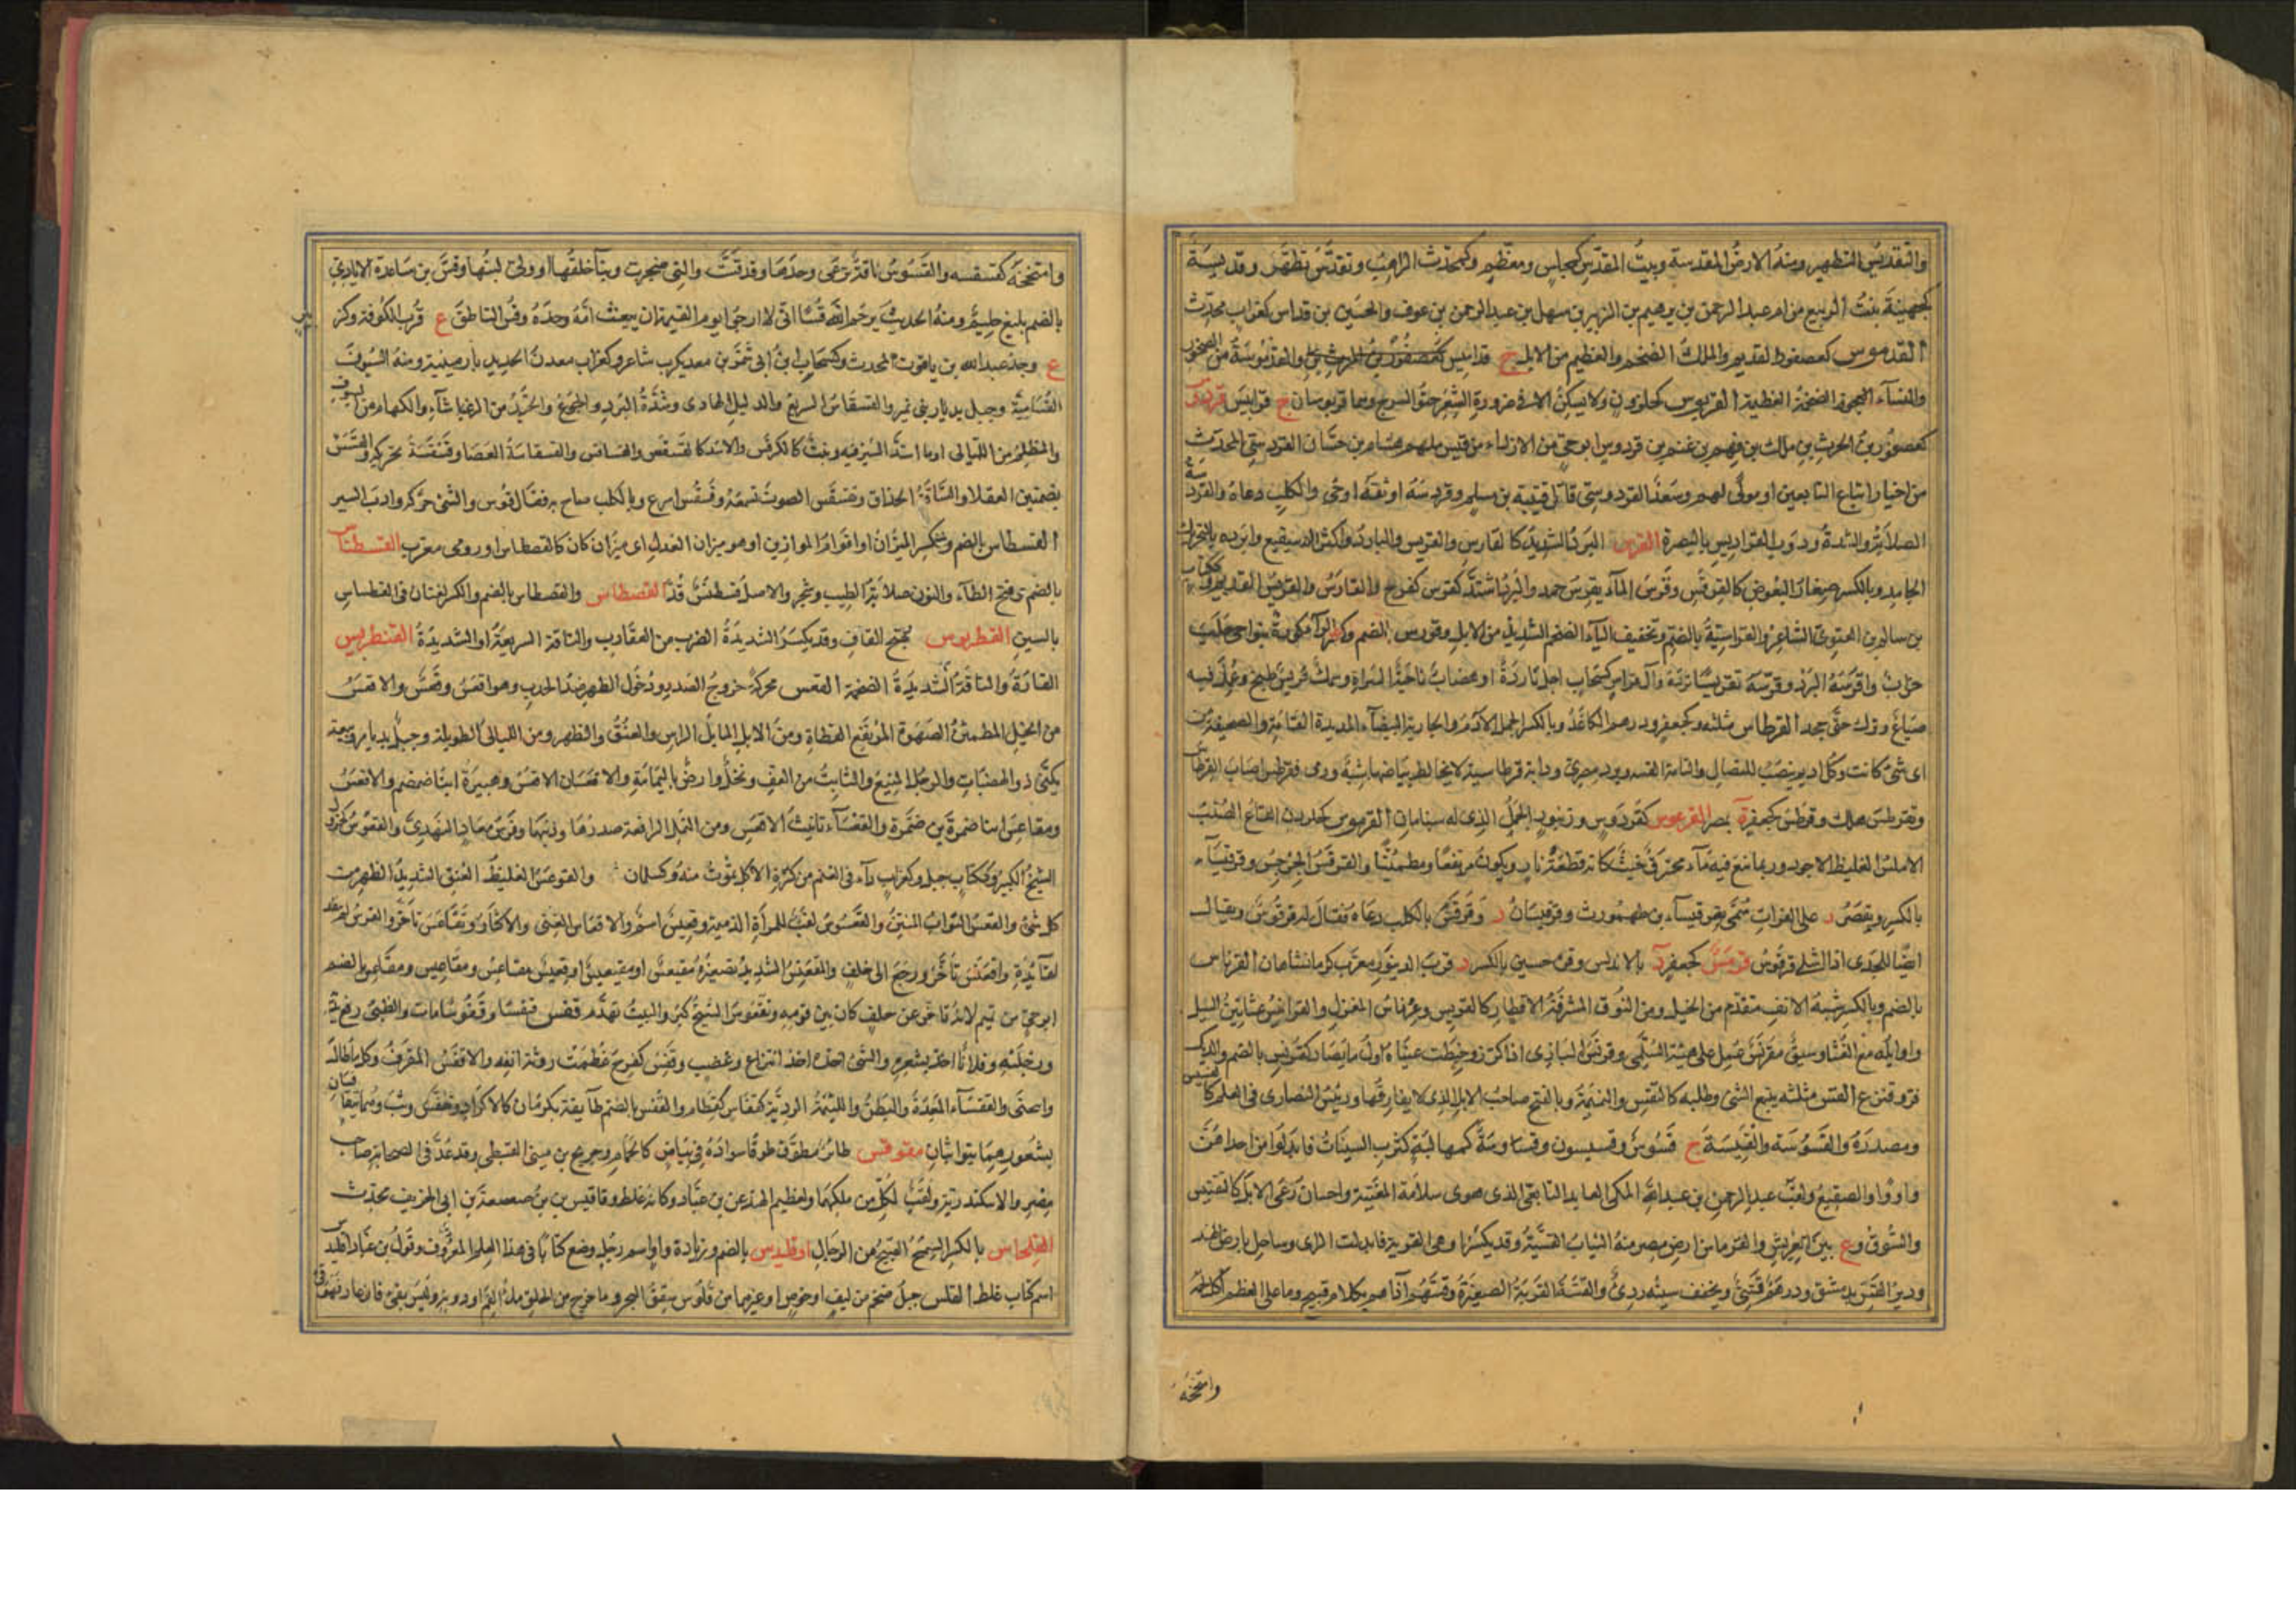 والتقديس التطهير ومنه الارض المقدسة وبيت المقدس كمجلس ومعظم وكمحدث الراهب وتقدس تطهر وقديسة
كجهينة بنت الربيع من ام عبد الرحمن بن ابرهيم بن الزبير بن سهل بن عبد الرحمن بن عوف والحسين بن قداس كغراب محدث
القدموس كعصفور القديم والملك الضخم والعظيم من الابل ج قداميس والقدموسة من الصخور
والنساء الضخمة العظيمة القربوس كحلزون ولا يسكن الا في ضرورة الشعر حنو السرج وهما قربوسان ج قرابيس قردوس
كعصفور بن الحرث بن مالك بن فهم بن غنم بن قردوس ابو حي من الازد او من قيس منهم هشام بن حسان القردوسي المحدث
من اخيار اتباع التابعين او مولى لهم وسعد القردوسي قاتل قتيبة بن مسلم وقردسه اوثقه او حى والكلب دعاه والقردسة
الصلابة والشدة ودرب القراديس بالبصرة القرس البرد الشديد كالقارس والقريس والبارد واكثف الصقيع وابرده بالتحريك
الجامد وبالكسر صغار البعوض كالقرقس وقرس الماء يقرس جمد والبرد اشتد كقرس كفرح والقارس والقريس القديم وككتاب
بن سالم بن الغنوي الشاعر والقراسية بالضم وتخفيف الياء الضخم الشديد من الابل وقورس بالضم وكسر الراء كورة بنواحي حلب
خراب واقرسه البرد وقرسه تقريسا برده وآل قراس كسحاب اجبل باردة او هضاب بناحية السراة وسمك قريس طبخ وعمل فيه
صباغ وترك حتى جمد القرطاس مثلثة وكجعفر ودرهم الكاغد وبالكسر الجمل الآدم والجارية البيضاء المديدة القامة والصحيفة من
اى شئ كانت وكل اديم ينصب للنضال والناقة الفتية وبرد مصري ودابة قرطاسية لا يخالط بياضها شية ورمى فقرطس اصاب القرطاس
وتقرطس هلك وقرطس كجعفر ة بمصر القرعوس كفردوس وزنبور الجمل الذي له سنامان القرقوس كحلزون القاع الصلب
الاملس الغليظ الاجرد وربما نبع فيه ماء محترق خبيث كانه قطعة نار ويكون مرتفعا ومطمئنا والقرقس الجرجس وقرقيساء
بالكسر ويقصر د على الفرات سمى بقرقيساء بن طهمورث وقرقيسان د وقرقس بالكلب دعاه فقال له قرقوس ويقال
ايضا للجدى اذا اشلى قرقوس قرمس كجعفر د بالاندلس وقرميسين بالكسر د قرب الدينور معرب كرمانشاهان القرناس
بالضم وبالكسر شبه الانف متقدم من الجبل ومن النوق المشرفة الاقطار كالقرنس وعرناس المغزل والقرانيس عثانين السيل
واوائله مع الغثاء وسيف مقرنس عمل على هيئة السلم وقرنس البازى اذا كرز وخيطت عيناه اول ما يصاد كقرنس بالضم والديك
فر وقنزع القس مثلثة تتبع الشئ وطلبه كالتقسس والنميمة وبالفتح صاحب الابل الذي لا يفارقها ورئيس النصارى فى العلم كالقسيس
ومصدره القسوسة والقسيسة ج قسوس وقسيسون وقساوسة كمهالبة كثرت السينات فابدلوا من احداهن
واوا والصقيع ولقب عبد الرحمن بن عبد الله المكى العابد التابعى الذى هوى سلامة المغنية واحسان رعى الابل كالتقسيس
والسوق وع بين العريش والفرما من ارض مصر منه الثياب القسية وقد يكسر او هى القزية فابدلت الزاى وساحل بارض الهند
ودير القس بدمشق ودرهم قسى ويخفف سينه ردئ والقسة القربة الصغيرة وقسهم آذاهم بكلام قبيح وما على العظم اكل لحمه
وامتخخه
وامتخخه كقسقسه والقسوس ناقة ترعى وحدها وقد قست والتى ضجرت وساء خلقها او ولى لبنها وقس بن ساعدة الايادي
بالضم بليغ حكيم ومنه الحديث يرحم الله قسا انى لارجو يوم القيمة ان يبعث امة وحده وقس الناطف ع قرب الكوفة وكز
ع وجد عبد الله بن ياقوت المحدث وكسحاب ابن ابى شمر بن معديكرب شاعر وكغراب معدن الحديد بارمينية ومنه السيوف
القساسية وجبل بديار بنى نمير والقسقاس السريع والدليل الهادى وشدة البرد والجوع والجيد من الرشاء والكهام من السيوف
والمظلم من الليالى او ما اشتد السير فيه ونبت كالكرفس والاسد كالقسقس والقساقس والقسقاسة العصا وقسقسة تحركها والقسس
بضمتين العقلاء والساقة الحذاق وتقسقس الصوت تسمعه وقسقس اسرع وبالكلب صاح به فقال قوس والشئ حركه وادأب السير
القسطاس بالضم وبكسر الميزان او اقوم الموازين او هو ميزان العدل اى ميزان كان كالقصطاس او رومى معرب القسطناس
بالضم وفتح الطاء والنون صلاية الطيب وشجر والاصل قسطنس قد القصطاس والقصطاس بالضم والكسر لغتان فى القسطاس
بالسين القطربوس بفتح القاف وقد يكسر الشديدة الضرب من العقارب والناقة السريعة او الشديدة القنطريس
الفارة والناقة الشديدة الضخمة القعس محركة خروج الصدر ودخول الظهر ضد الحدب وهو اقعس وقعس والاقعس
من الخيل المطمئن الصهوة المرتفع القطاة ومن الابل المايل الراس والعنق والظهر ومن الليالى الطويلة وجبل بديار ربيعة
يكنى ذو الهضبات والرجل المنيع والثابت من العز ونخل وارض باليمامة والاقعسان الاقعس وهبيرة ابنا ضمضم والاقعس
ومقاعس ابنا ضمرة بن ضمرة والقعساء تانيث الاقعس ومن النمل الرافعة صدرها وذنبها وفرس معاذ النهدى والقعوس كجرول
الشيخ الكبير وككتاب جبل وكغراب داء فى الغنم من كثرة الاكل تموت منه وكسلمان والقوعس الغليظ العنق الشديد الظهر من
كل شئ والقعس التراب المنتن والقعسوس لقب للمرأة الذميمة وقعيس اسم والاقعاس الغنى والاكثار وتقاعس تاخر والفرس لم ينقد
لقائده واقعنسس تأخر ورجع الى خلف والمقعنسس الشديد تصغيره مقيعس او مقيعيس او قعيس مقاعس ومقاعيس ومقاعس بالضم
ابو حي من تميم لانه تأخر عن حلف كان بين قومه وتقعوس الشيخ كبر والبيت تهدم قفس قفسا وقفوسا مات والظبى ربط يديه
ورجليه وفلانا اخذ بشعره والشئ اخذه اخذ انتزاع وغضب وقفس كفرح عظمت روثة انفه والاقفس المقرف وكل ما طال
وانحنى والقفساء المعدة والبطن واللئيمة الرديئة كقفاس كقطام والقفس بالضم طائفة بكرمان كالاكراد وتقفس وثب وهما يتقافسان
بشعورهما يتواثبان مقوقس طائر مطوق طوقا سواده فى بياض كالحمام وجريج بن مينى القبطى وقد عد فى الصحابة صاحب
مصر والاسكندرية ولقب لكل من ملكهما ولعظيم الهند عن بن عباد وكانه غلط وقاقيس بن صعصعة بن ابى الخريف محدث
القلحاس بالكسر السمج القبيح من الرجال اوقليدس بالضم وزيادة واو اسم رجل وضع كتابا فى هذا العلم المعروف وقول بن عباد اقليدس
اسم كتاب غلط القلس حبل ضخم من ليف او خوص او غيرهما من قلوس سفن البحر وما خرج من الحلق ملء الفم او دونه وليس بقئ فان عاد فهو قئ